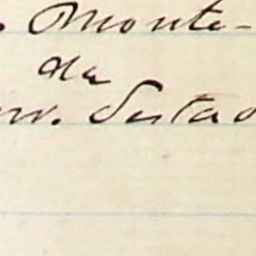 . Monte-
da
w. Sertao